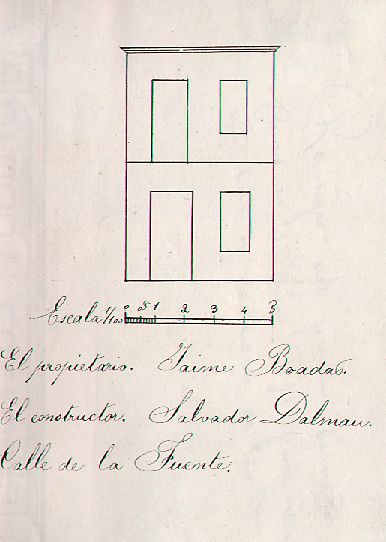 Escala 1/100 0 05 1 2 3 4 5
El propietario. Jaime Boadas.
El constructor. Salvador Dalmau.
Calle de la Fuente.